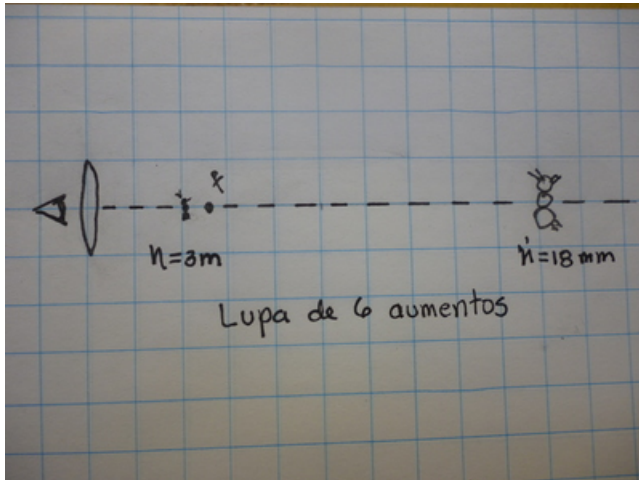 f
h=3m
h'=18mm
Lupa de 6 aumentos